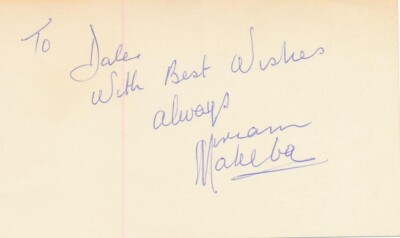 To Dale
With Best Wishes
always
Miriam
Makeba